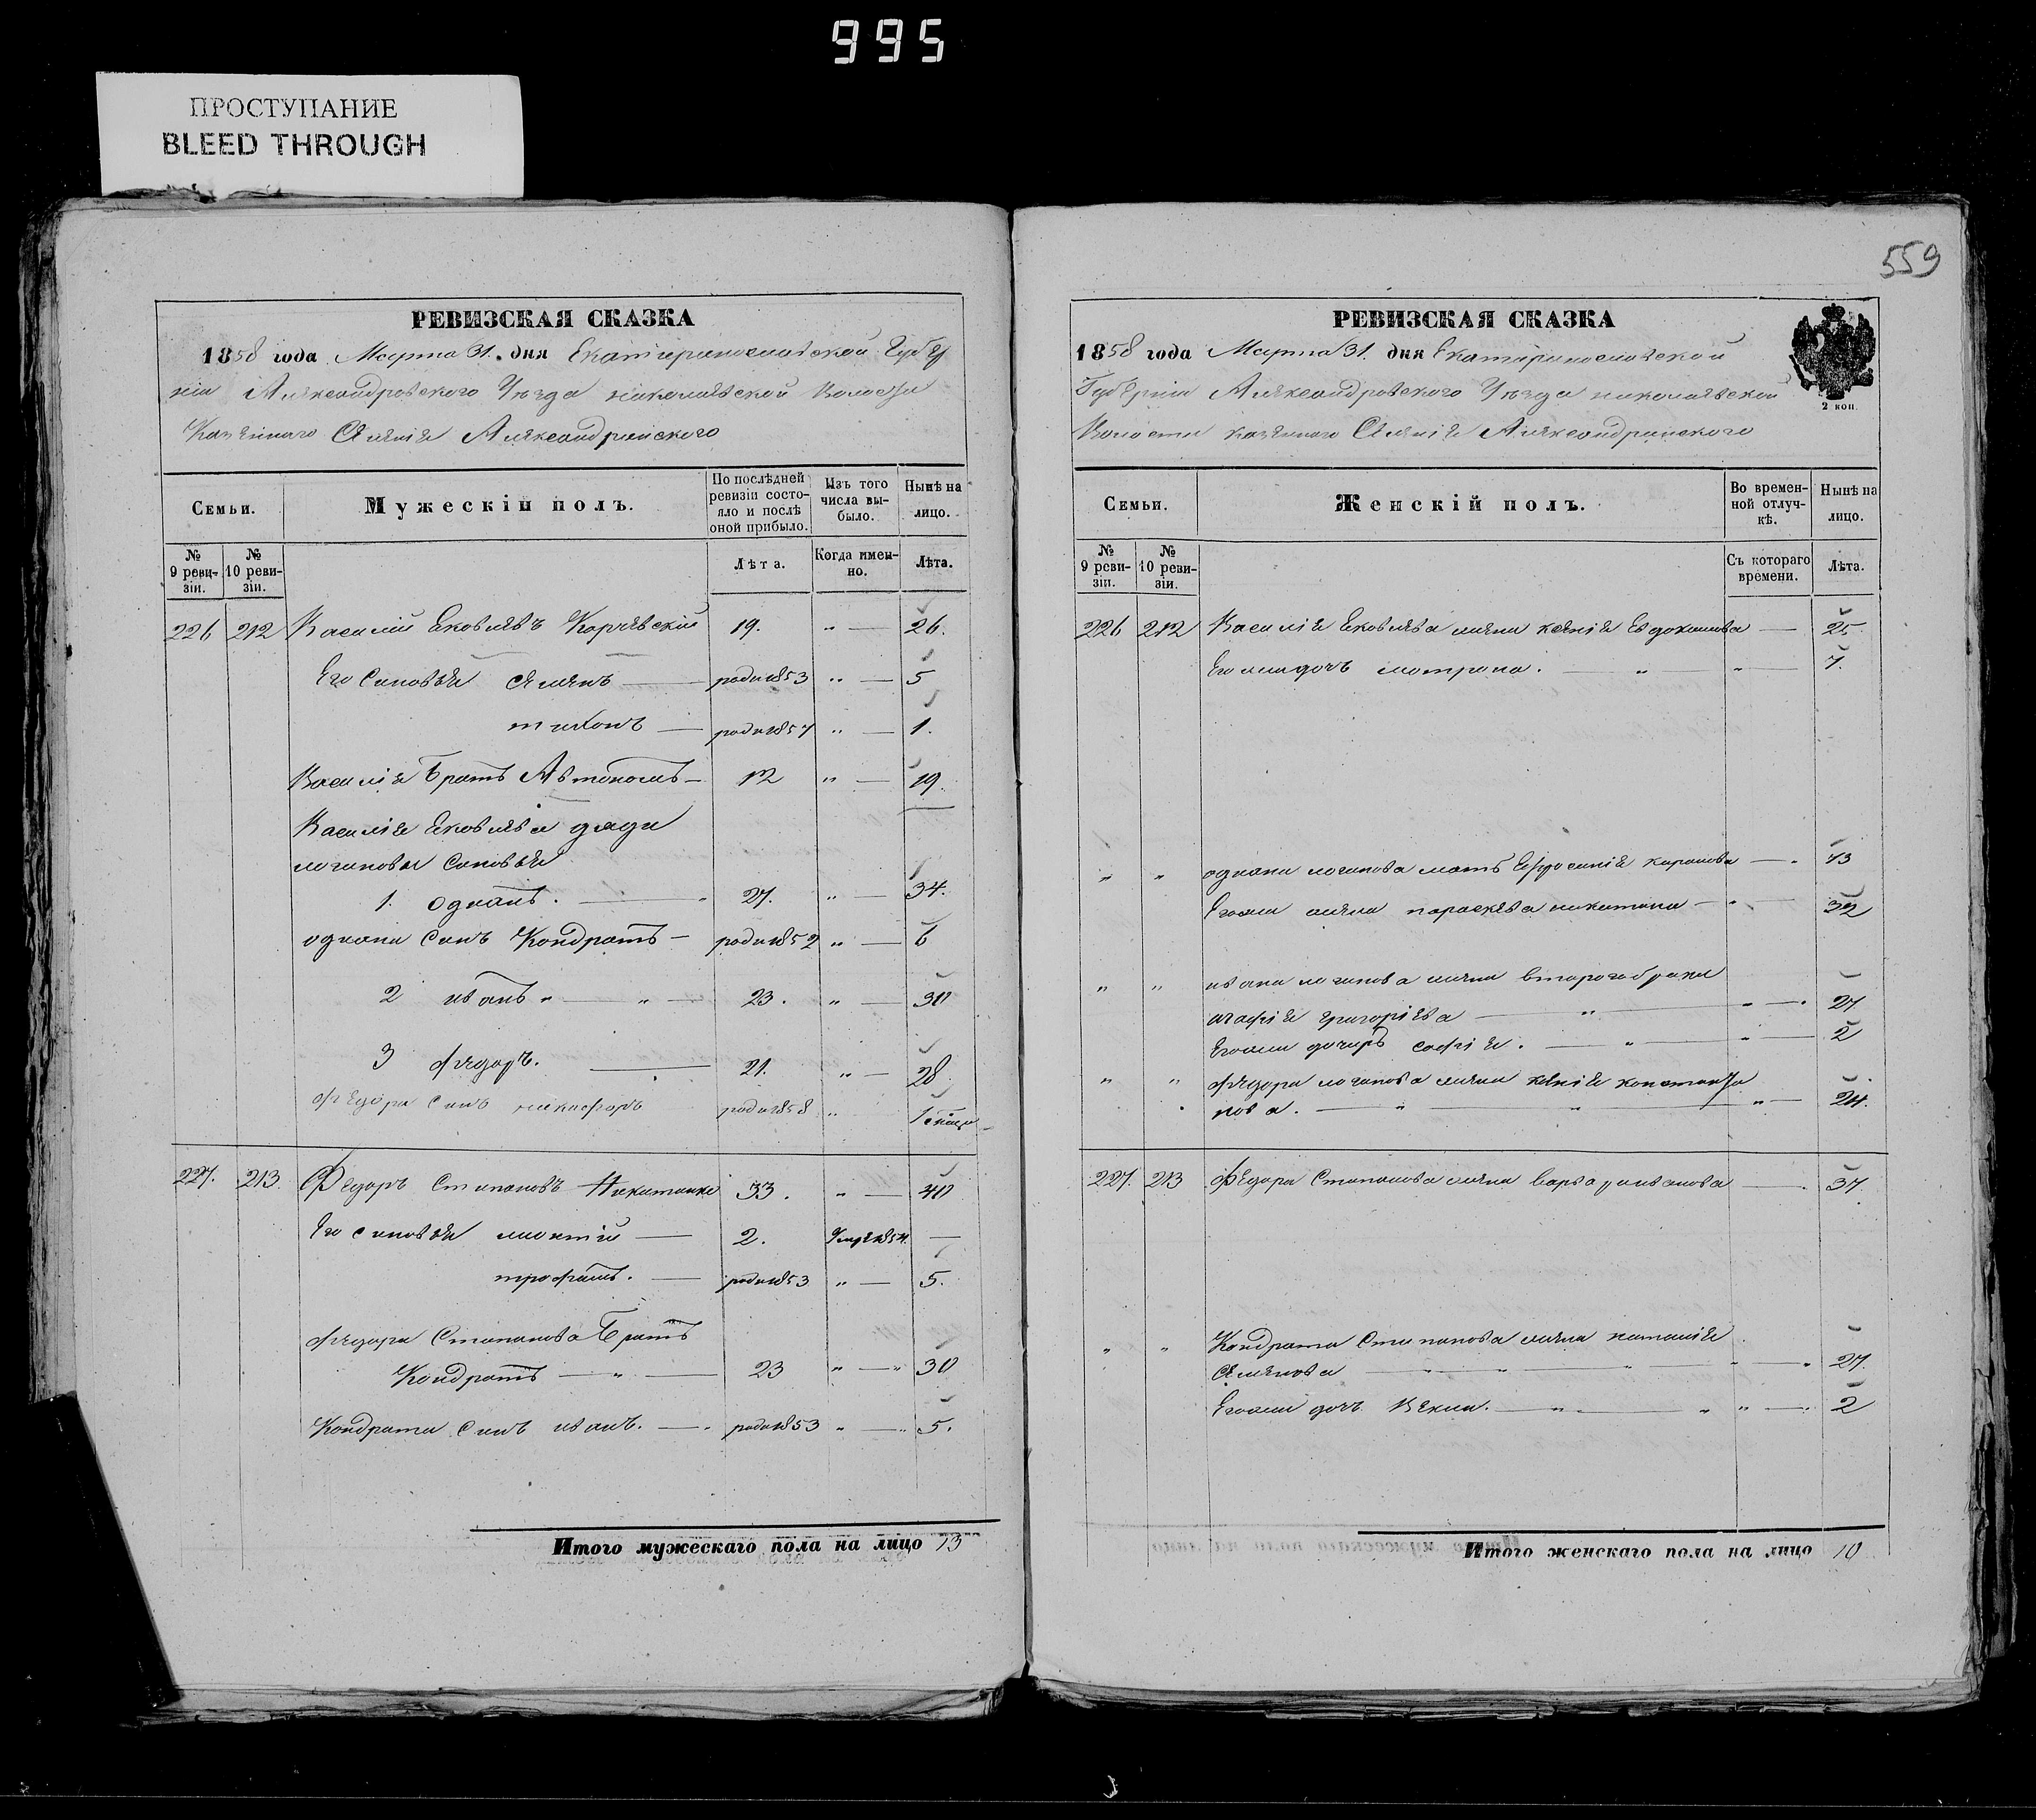 995
ПРОСТУПАНИЕ
BLEED THROUGH
РЕВИЗСКАЯ СКАЗКА
1858 года Марта 31. дня Екатериносла́вской Губер
ніи Александровского Уезда николаевской Волости
Казенного Селенія Александрийского
Семьи.
Мужескій полъ.
По послѣдней ревизіи состояло и послѣ оной прибыло.
Изъ того числа выбыло.
Нынѣ на лицо.
№ 9 ревизіи.
№ 10 ревизіи.
Лѣта.
Когда именно.
Лѣта.
226 212 Василий Яковлевъ 19. „ — 26.
Его Синовья Семенъ — роди 1853 „ — 5
тихонъ — роди 1857 „ — 1.
Василія Братъ Автономъ — 12 „ — 19.
Василія Яковлева дяди
логинова Синовья
1. 27. „ — 34.
Синъ Кондратъ — роди 1852 „ — 6
2 иванъ „ — „ — 23. „ — 30
3 федоръ. — 21. „ — 28
Федора Синъ никифоръ роди 1858 „ 1
227. 213. Федоръ Степановъ Никитенко 33. „ — 40
Его синовья — 2. Умре 1854. —
трофимъ. — роди 1853 „ — 5.
федора Степанова Братъ
Кондратъ — „ — 23 „ — „ 30
Кондрата Синъ иванъ. — роди 1853 „ — „ 5.
Итого мужескаго пола на лицо 13
559
РЕВИЗСКАЯ СКАЗКА
1858 года Марта 31. дня Екатеринославской
Губерніи Александровского Уезда николаевской
Волости казенного Селенія Александрийского
2 коп.
Семьи.
Женскій полъ.
Во временной отлучкѣ.
Нынѣ на лицо.
№ 9 ревизіи.
№ 10 ревизіи.
Съ котораго времени.
Лѣта.
226 212 Василія Яковлева жена ксенія Евдокимова — 25
Его дочь мотрона. — „ „ — 7.
„ „ логинова мать Ефросинія — 43
жена параскева никитина — „ — 32
„ „ ивана логинова жена второго брака
агафія григоріева — „ „ — 27
дочирь софія. — „ „ — 2
„ „ федора логинова жена ксенія константи
нова. — „ — „ — „ — 24.
227. 213 Федора Степанова жена варвара иванова — 37
„ „ Кондрата Степанова жена наталія
Семенова — „ — „ 27.
дочь — „ „ „ — 2
Итого женскаго пола на лицо 10